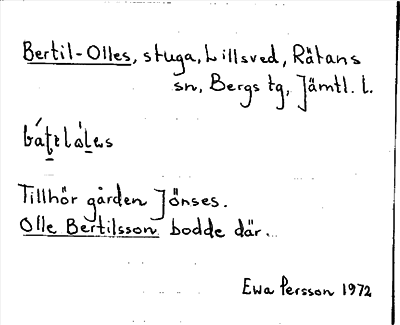 Bertil-Olles, stuga, Lillsved, Rätans
sn, Bergs tg, Jämtl. l.
Tillhör gården Jönses.
Olle Bertilsson bodde där.
Ewa Persson 1972